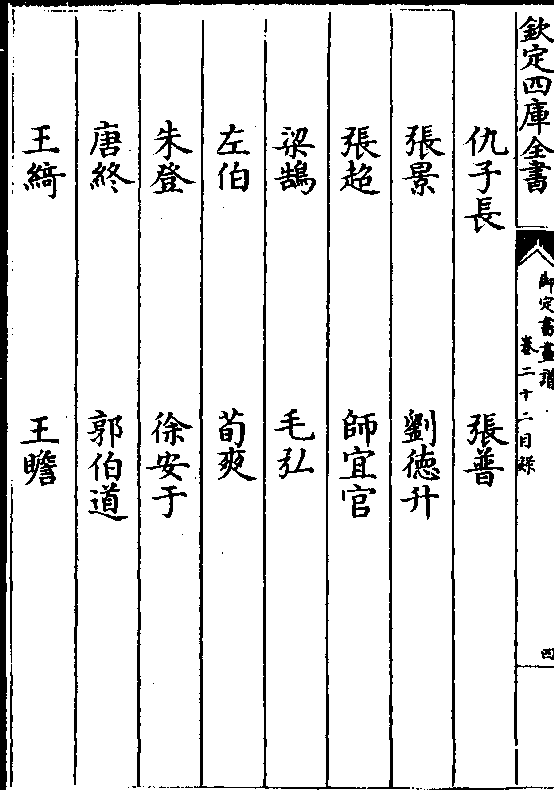 欽定四庫全書
御定書畫譜
卷二十二目録
四
仇子長 張普
張景 劉德升
張超 師宜官
梁鵠 毛弘
左伯 荀爽
朱登 徐安于
唐終 郭伯道
王綺 王瞻